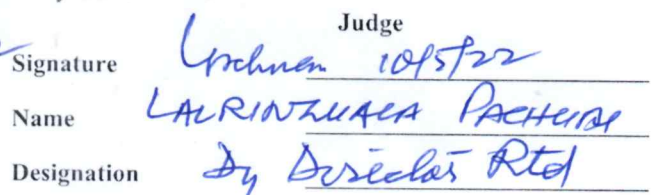 Judge
Signature 10/5/22
Name LALRINZUALA PACHUAU
Designation Dy Director Rtd